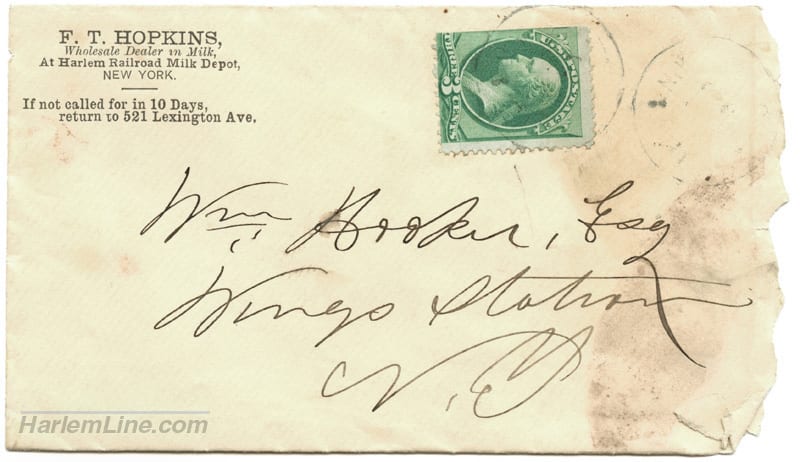 F. T. HOPKINS,
Wholesale Dealer in Milk,
At Harlem Railroad Milk Depot,
NEW YORK.
If not called for in 10 Days,
return to 521 Lexington Ave.
U.S. POSTAGE
THREE 3 CENTS
Wm Hooker, Esq
Wings Station
N.Y
HarlemLine.com